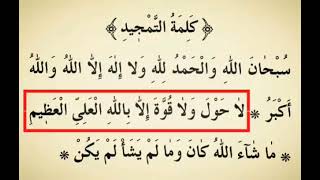 ﴿ كَلِمَةُ التَّمْجِيدِ ﴾
سُبْحَانَ اللهِ وَالْحَمْدُ لِلّٰهِ وَلَا إِلَهَ إِلَّا اللهُ وَاللهُ
أَكْبَرُ * لَا حَوْلَ وَلَا قُوَّةَ إِلَّا بِاللهِ الْعَلِيِّ الْعَظِيمِ
* مَا شَاءَ اللهُ كَانَ وَمَا لَمْ يَشَأْ لَمْ يَكُنْ *